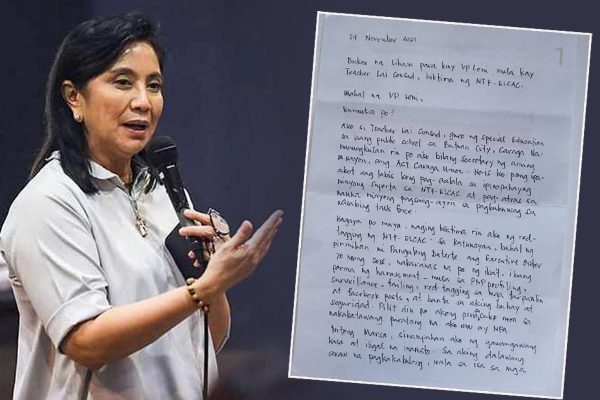 24 November 2021
1
Bukas na Liham para kay VP Leni mula kay
Teacher Lai Consad, biktima ng NTF-ELCAC.
Mahal na VP Leni,
Kumusta po?
Ako si Teacher Lai Consad, guro ng Special Education
sa isang public school sa Butuan City, Caraga.
rin po ako bilang Secretary ng aming
unyon, ang ACT Caraga Union. Hindi ko po
abot ang labis kong pag-aalala sa ipinapahayag
ninyong suporta sa NTF-ELCAC at pag-atras sa
nauna ninyong pagsang-ayon sa pagbubuwag sa
nasabing task force.
Kagaya po ninyo, naging biktima rin ako ng red-
tagging ng NTF-ELCAC. Sa katunayan, buhat ng
pirmahan ni Pangulong Duterte ang Executive Order
70 noong 2018, nakaranas na po ng iba't-ibang
porma ng harassment - mula sa PNP profiling,
surveillance, tailing, red tagging sa mga tarpaulin
at facebook posts, at banta sa aking buhay at
seguridad. Pilit din po akong
nakakatawang paratang na ako raw ay NPA
Nitong Marso, sinampahan ako ng gawa-gawang
kaso at iligal na inaresto. Sa aking dalawang
araw na pagkakakulong, wala sa isa sa mga